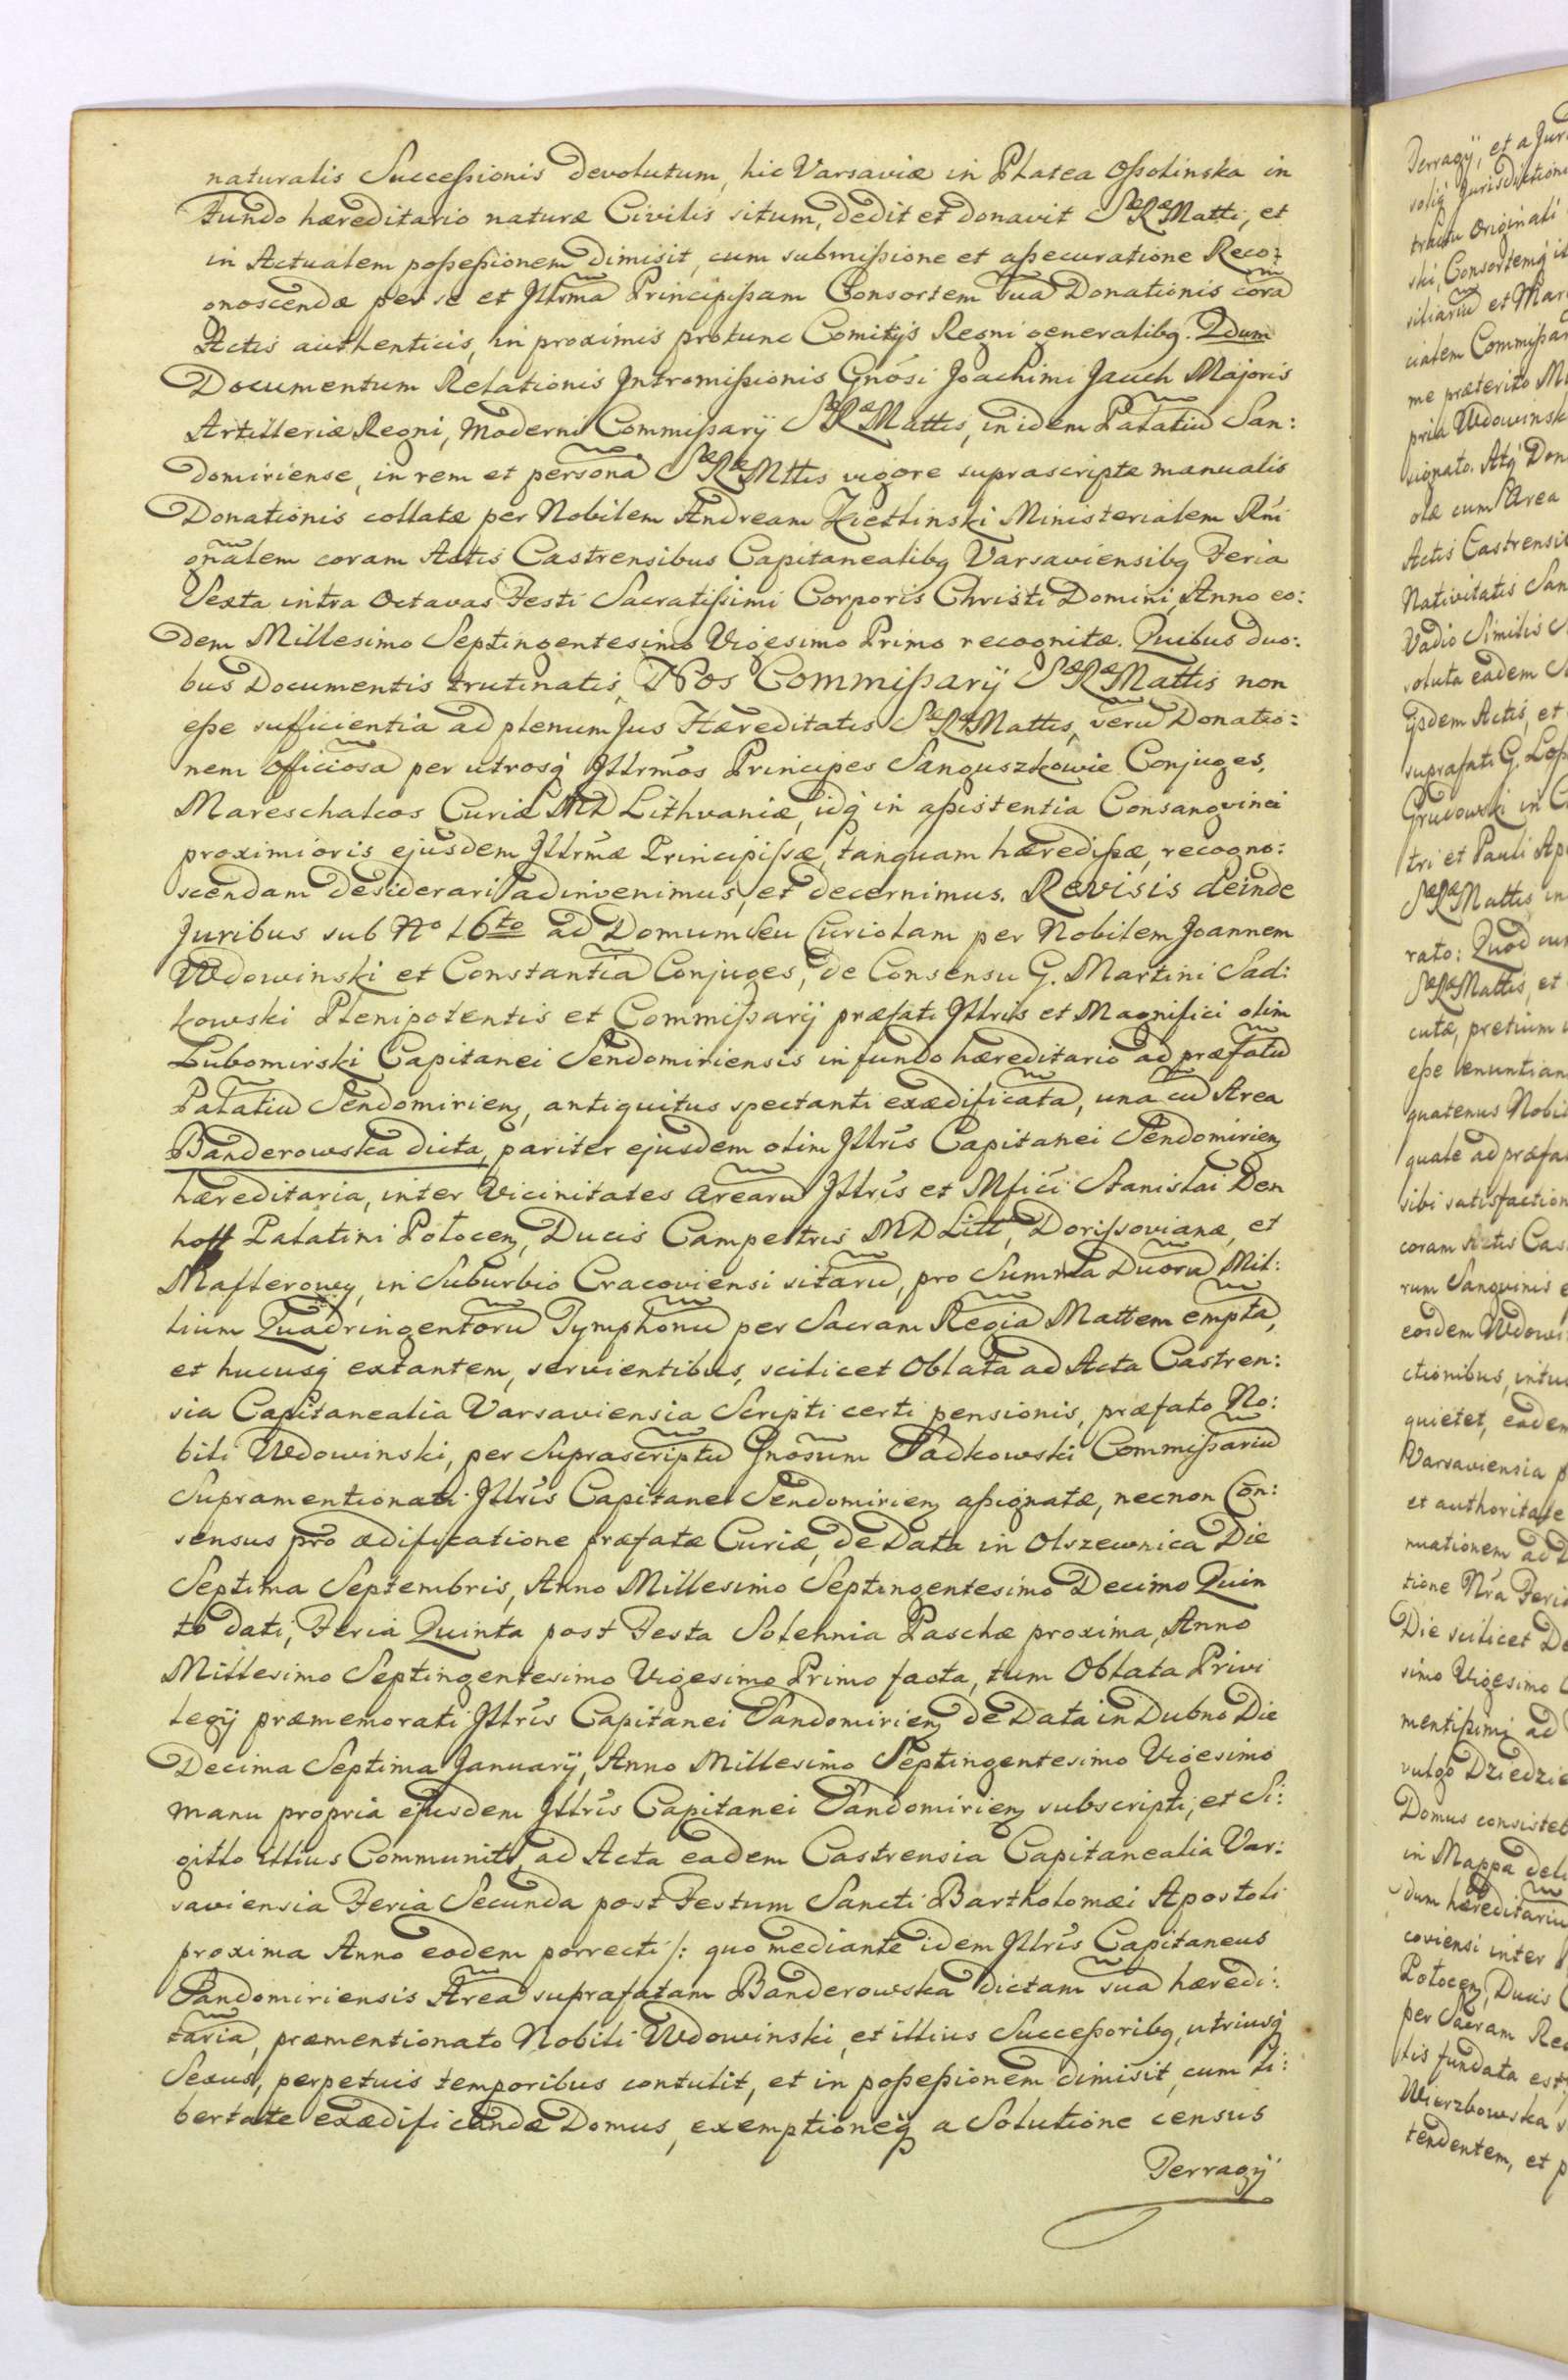 naturalis Successionis devolutum, hic Varsaviæ in Platea Ossolinska in
Fundo hæreditario naturæ Civilis situm, dedit et donavit SæRæMatti, et
in Actualem possessionem dimisit, cum submissione et assecuratione Reco:
gnoscendæ per se et Jllrm̃a Principissam Consortem sua Donationis corã
Actis authenticis, in proximis protunc Comitÿs Regni generalibq. 2dum
Documentum Relationis Jntromissionis Gnõsi Joachimi Jauch Majoris
Artilleriæ Regni, Moderni Commissarÿ SæRæMattis, in idem Palatiũ San:
domiriense, in rem et personã SæRæMttis vigore suprascriptæ manualis
Donationis collatæ per Nobilem Andream Kietlinski Ministerialem Rñi
gñalem coram Actis Castrensibus Capitanealibq Varsaviensibq Feria
Sexta intra Octavas Festi Sacratissimi Corporis Christi Domini, Anno eo:
dem Millesimo Septingentesimo Vigesimo Primo recognitæ. Quibus duo:
bus Documentis trutinatis, Nos Commissarÿ SæRæMattis non
esse sufficientia ad plenum Jus Hæreditatis SæRæMattis, verũ Donatio:
nem officiosã per utrosq́ Jllrm̃os Principes Sanguszkowie Conjuges,
Mareschalcos Curiæ MD Lithvaniæ, idq́ in assistentia Consangvinei
proximioris ejusdem Jllrm̃æ Principissæ, tanquam hæredissæ, recogno:
scendam desiderari adinvenimus, et decernimus. Revisis deinde
Juribus sub No 16to ad Domum seu Curiolam per Nobilem Joannem
Wdowinski et Constantiã Conjuges, de Consensu G. Martini Sad:
kowski Plenipotentis et Commissarÿ præfati Jllris et Magnifici olim
Lubomirski Capitanei Sendomiriensis in fundo hæreditario ad præfatũ
Palatiũ Sendomirienq, antiquitus spectanti exædificatã, una cũ Area
Banderowska dicta, pariter ejusdem olim Jllrĩs Capitanei Sendomirienq
hæreditaria, inter Vicinitates arearũ Jllrĩs et Mfici Stanislai Den
hoff Palatini Polocenq, Ducis Campestris MD Litt, Dorissovianæ, et
Mafterowq, in Suburbio Cracoviensi sitarũ, pro Summa Duorũ Mil:
lium Quadringentorũ Tymphonũ per Sacram Regiã Mattem emptã,
et hucusq́ extantem, servientibus, scilicet Oblata ad Acta Castren:
sia Capitanealia Varsaviensia Scripti certi pensionis, præfato No:
bili Wdowinski, per Suprascriptũ Gnosũm Sadkowski Commissariũ
Supramentionati Jllrĩs Capitanei Sendomirienq assignatæ, necnon Con:
sensus pro ædificatione præfatæ Curiæ, de Data in Olszewnica Die
Septima Septembris, Anno Millesimo Septingentesimo Decimo Quin
to dati, Feria Quinta post Festa Solennia Paschæ proxima, Anno
Millesimo Septingentesimo Vigesimo Primo facta, tum Oblata Privi
legÿ præmemorati Jllrĩs Capitanei Sandomirienq de Data in Dubno Die
Decima Septima Januarÿ, Anno Millesimo Septingentesimo Vigesimo
manu propria ejusdem Jllrĩs Capitanei Sandomirienq subscripti, et Si:
gillo illius Communiti, ad Acta eadem Castrensia Capitanealia Var:
saviensia Feria Secunda post Festum Sancti Bartholomæi Apostoli
proxima Anno eodem porrecti /: quo mediante idem Jllrĩs Capitaneus
Sandomiriensis Areã suprafatam Banderowska dictam suã hæredi:
tariã, præmentionato Nobili Wdowinski, et illius Successoribq, utriusq́
Sexus, perpetuis temporibus contulit, et in possessionem dimisit, cum li:
bertate exædificandæ Domus, exemptioneq́ a Solutione census
Terragÿ
Terragÿ, et a Juri
soliq́ Jurisdictioni
tractu Originali
ski, Consortemq́
siliariũ et Mar
cialem Commissar
me præterito
pria Wdowinsk
signato. Atq́ Don
olæ cum Area
Actis Castrensi
Nativitatis San
Vadio Simitis
soluta eadem
ÿsdem Actis, et
suprafati G. Lop
Grucowski in
tri et Pauli Ap
SæRæMattis, in
rato: Quod
SæRæMattis, et
cutæ, pretium
esse renuntian
quatenus Nobi
quale ad præfa
sibi satisfaction
coram Actis Cas
rum Sanguinis
eosdem Wdowi
ctionibus, intu
quietet, eadem
Varsaviensia
et authoritate
nuationem ad
tione Nrã Feri
Die scilicet De
simo Vigesimo
mentissimi ad
vulgo Dziedzi
Domus consistet
in Mappa deli
dum hæreditariũ
coviensi inter
Polocenq, Ducis
per Sacram Re
tis fundata est,
Wierzbowska
tendentem, et